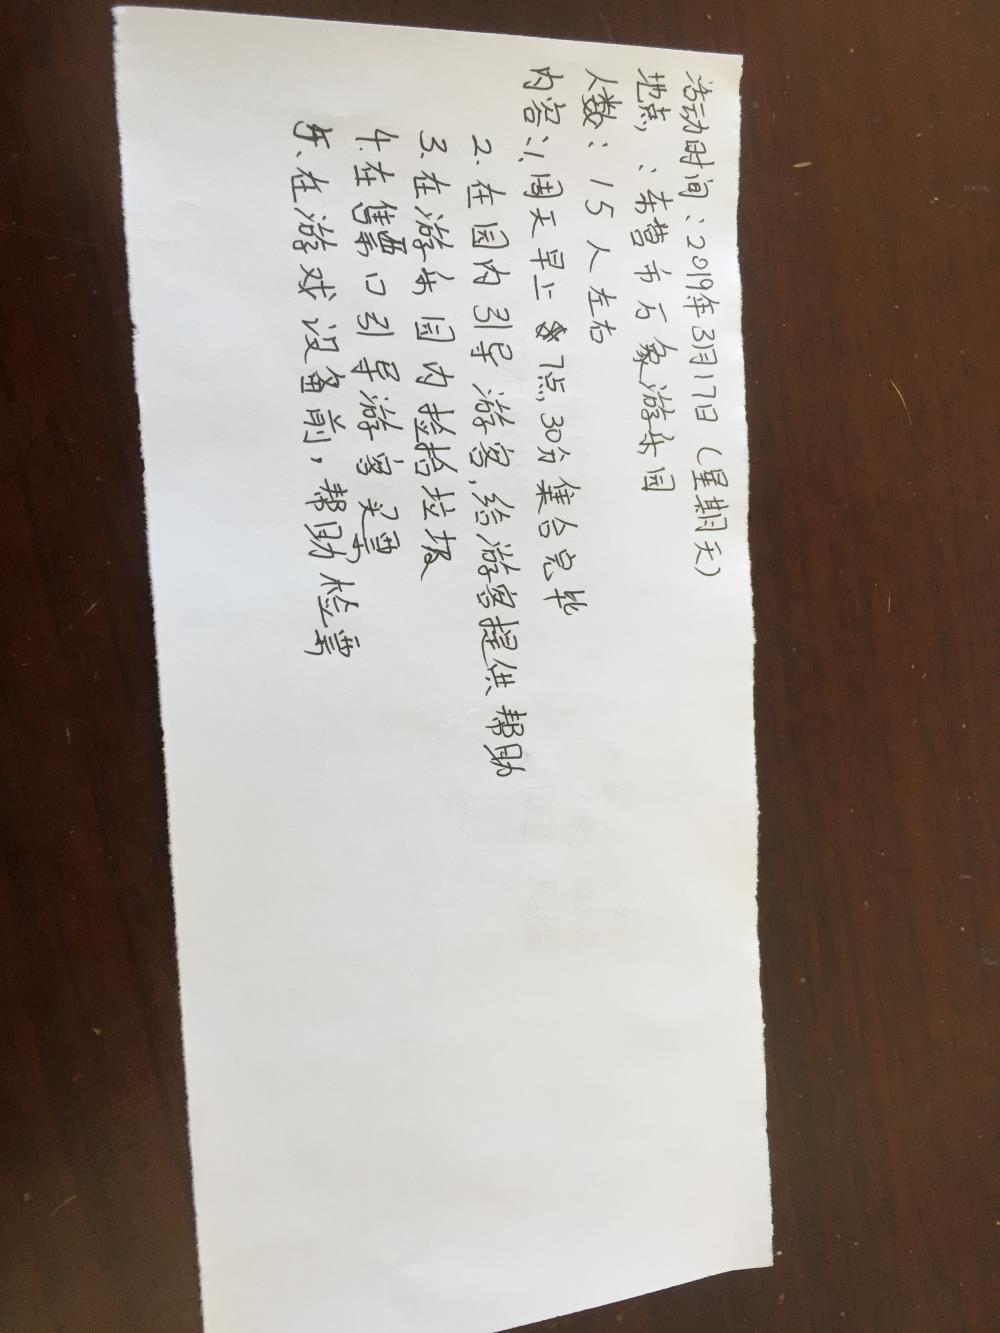 活动时间：2019年3月17日（星期天）
地点：东营市万象游乐园
人数：15人左右
内容：1.周天早上7点30分集合完毕
2.在园内引导游客,给游客提供帮助
3.在游乐园内捡拾垃圾
4.在售票口引导游客买票
5、在游戏设备前，帮助检票